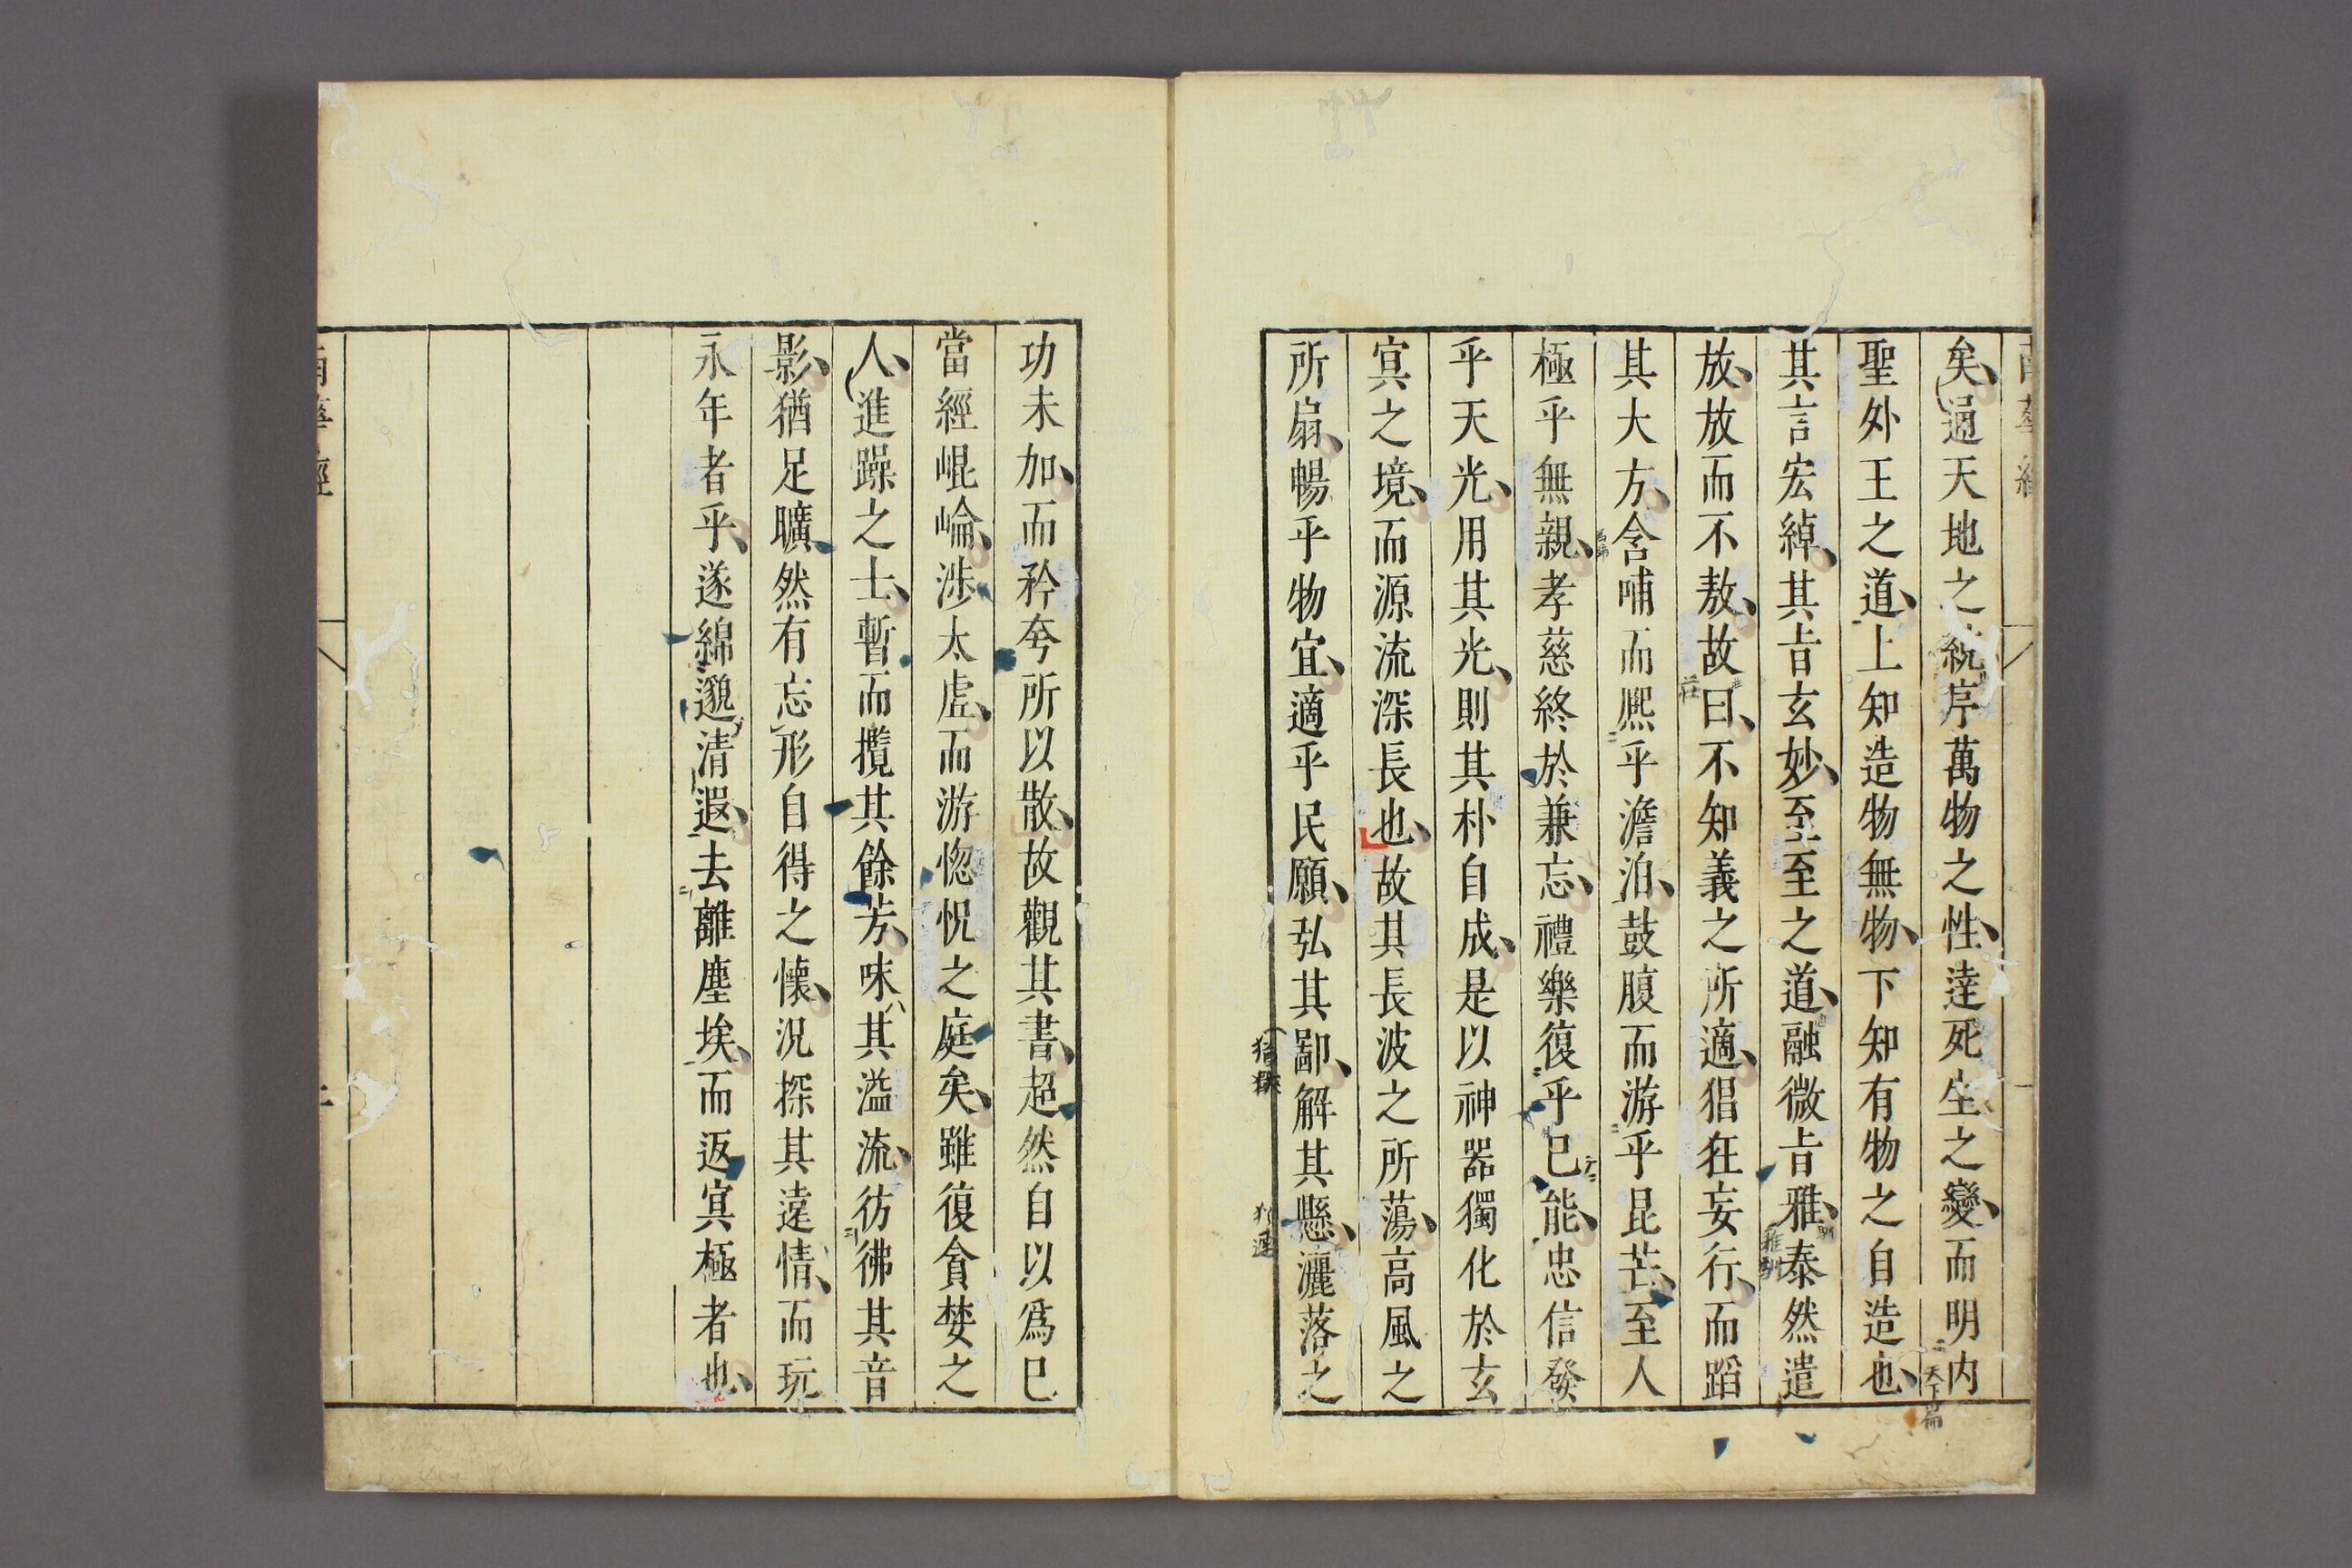 矣通天地之統序萬物之性達死生之變而明内
聖外王之道上知造物無物下知有物之自造也
其言宏綽其㫖玄妙至至之道融微㫖雅泰然遣
放放而不敖故曰不知義之所適猖狂妄行而蹈
其大方含哺而熈乎澹泊鼓腹而游乎昆芒至人
極乎無親孝慈終於兼忘禮樂復乎已能忠信發
乎天光用其光則其朴自成是以神器獨化於玄
冥之境而源流深長也故其長波之所蕩高風之
所扇暢乎物宜適乎民願弘其鄙解其懸灑落之
功未加而矜夸所以散故觀其書超然自以爲已
當經崐崘涉太虚而游惚怳之庭矣雖復貪婪之
人進躁之士暫而攬其餘芳味其溢流彷彿其音
影猶足曠然有忘形自得之懷況探其遠情而玩
永年者乎遂綿邈清遐去離塵埃而返冥極者也
南華經